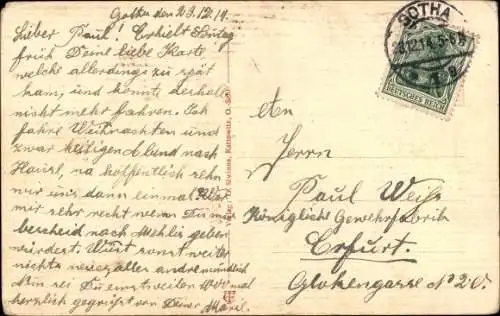 Gotha den 23.12.14.
Lieber Paul! Erhielt
früh Deine liebe Karte
welche allerdings zu spät
kam, und konnte deshalb
nicht mehr fahren. Ich
fahre Weihnachten und
zwar heiligen Abend nach
hoffentlich sehn
wir uns dann einmal.
mir sehr recht wenn Du
bescheid nach Mehlis geben
würdest. Wüst sonst weiter
nichts neues alles andre mündlich
Nun sei Du einstweilen 1000 mal
herzlich gegrüßt von Deiner
Verlag: Siwinna, Kattowitz, O. Schl.
GOTHA
23.12.14. 5-6 N
DEUTSCHES REICH
Herrn
Paul Weiß
Königliche Gewehrfabrik
Erfurt.
Glokengasse No 20.